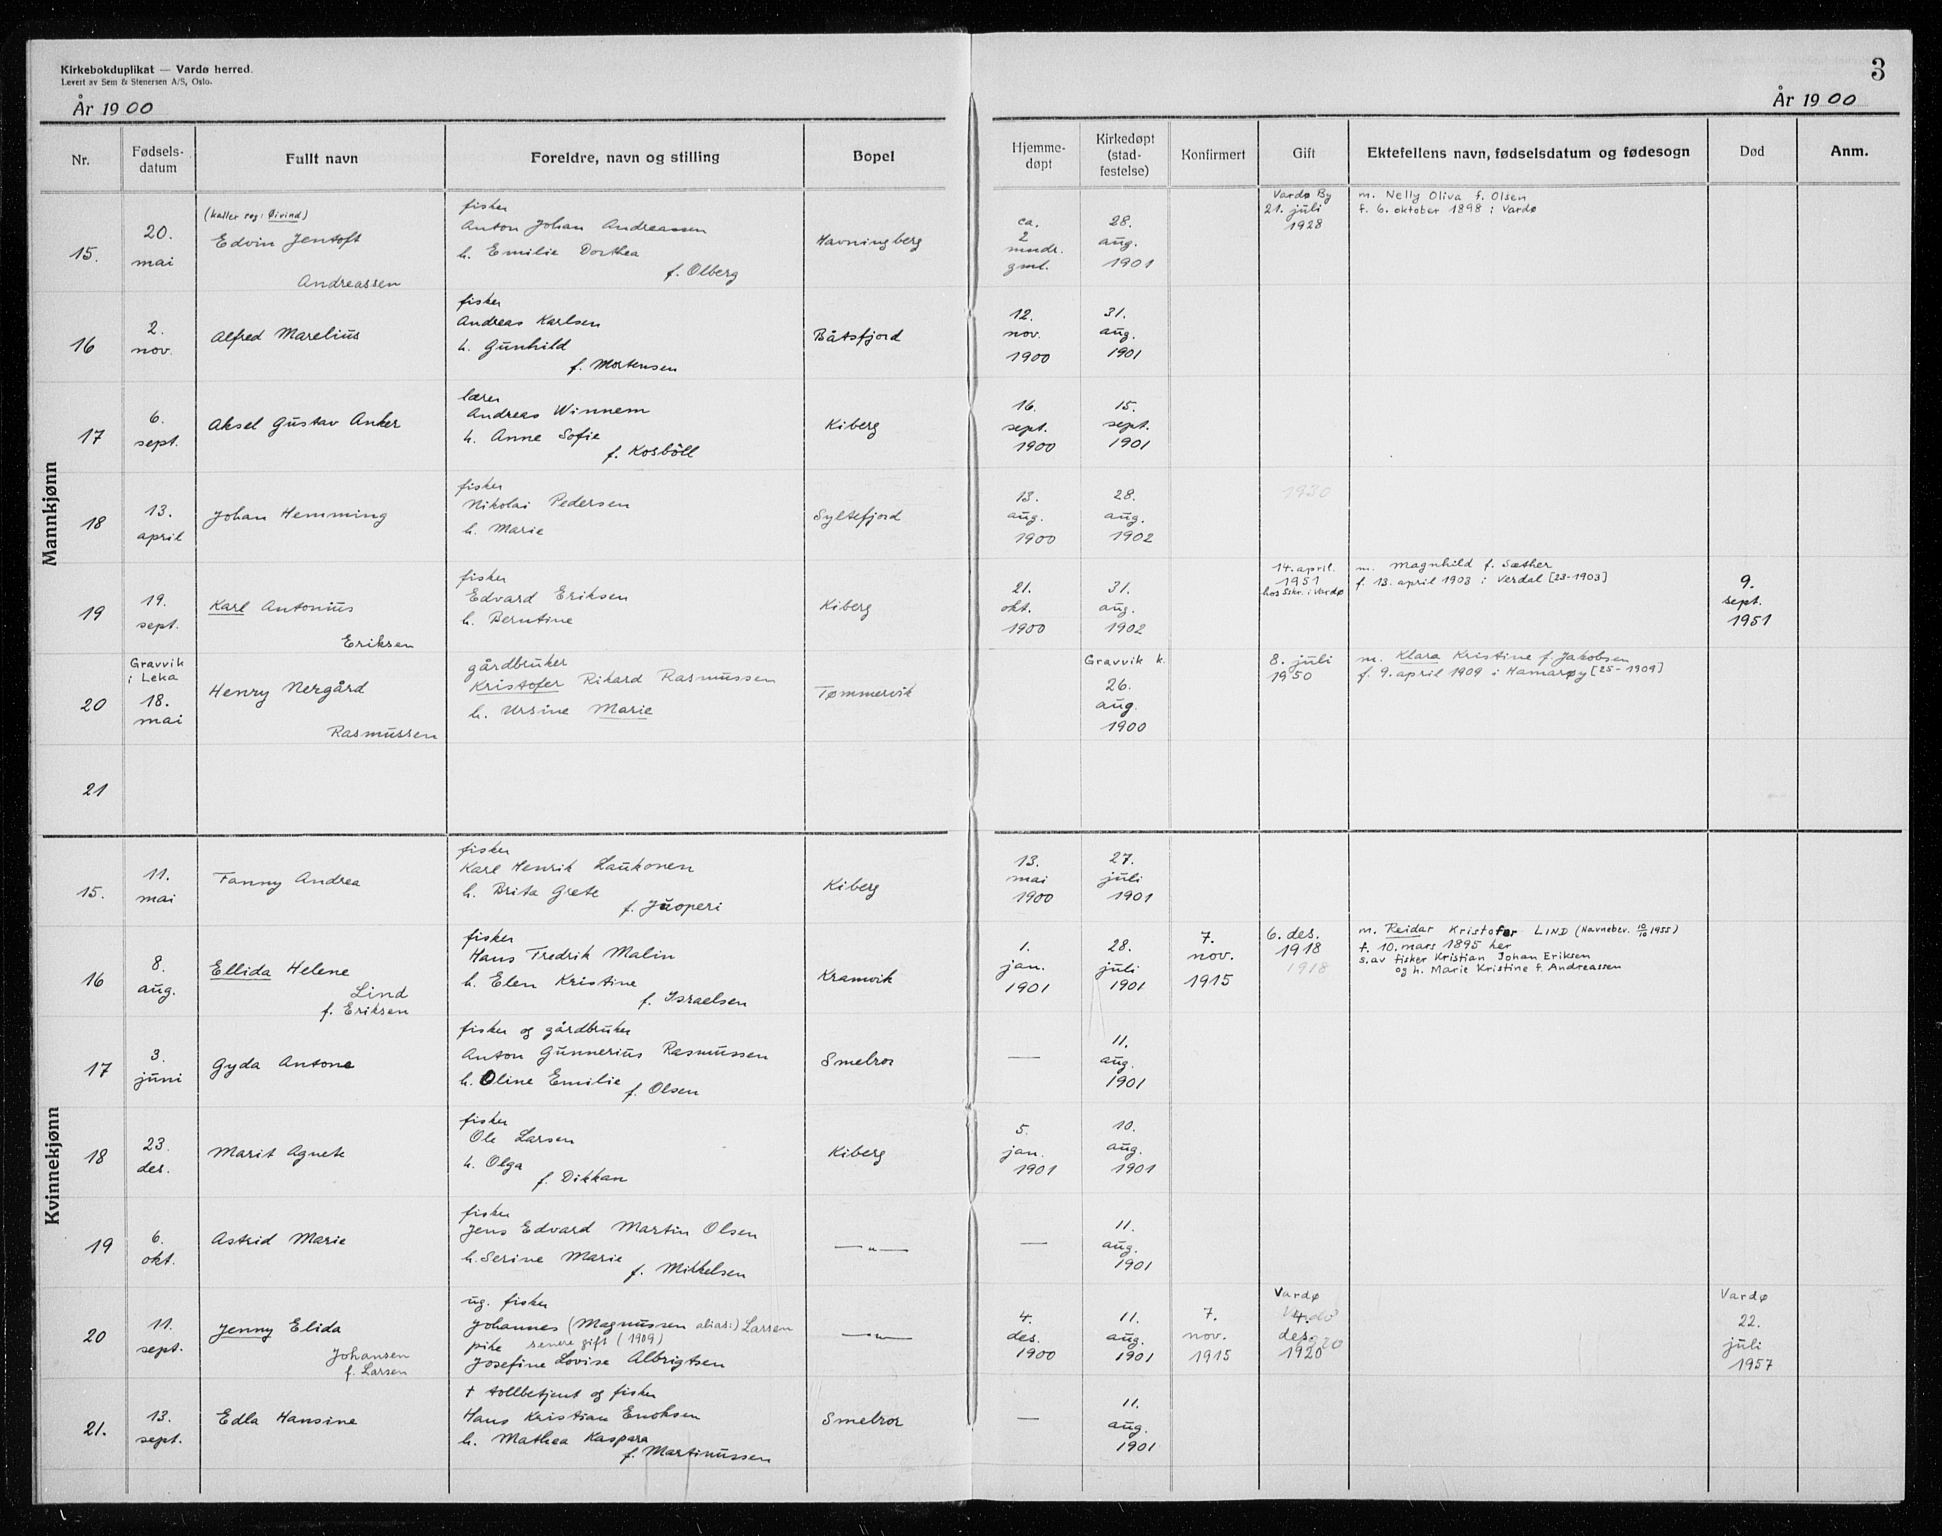 Kirkebokduplikat — Vardø herred.
Levert av Sem & Stenersen A/S, Oslo.
År 1900
3
År 1900
Nr.
Fødsels-
datum
Fullt navn
Foreldre, navn og stilling
Bopel
Hjemme-
døpt
Kirkedøpt
(stad-
festelse)
Konfirmert
Gift
Ektefellens navn, fødselsdatum og fødesogn
Død
Anm.
Mannkjønn
15.
20.
mai
(kaller seg: Øivind)
Edvin Jentoft
Andreassen
fisker
Anton Johan Andreassen
h. Emilie Dorthea
f. Olberg
Havningberg
ca.
2
mndr.
gml.
28.
aug.
1901
Vardø By
21. juli
1928
m. Nelly Oliva f. Olsen
f. 6. oktober 1898 i Vardø
16
2.
nov.
Alfred Marelius
fisker
Andreas Karlsen
h. Gunhild
f. Mortensen
Båtsfjord
12.
nov.
1900
31.
aug.
1901
17
6.
sept.
Aksel Gustav Anker
lærer
Andreas Winnem
h. Anne Sofie
f. Kosböll
Kiberg
16.
sept.
1900
15.
sept.
1901
18
13.
april
Johan Hemming
fisker
Nikolai Pedersen
h. Marie
Syltefjord
13.
aug.
1900
28.
aug.
1902
1930
19
19.
sept.
Karl Antonius
Eriksen
fisker
Edvard Eriksen
h. Berntine
Kiberg
21.
okt.
1900
31.
aug.
1902
14. april.
1951
hos sskr. i Vardø
m. Magnhild f. Sæther
f. 13. april 1903 i Verdal [23-1903]
9.
sept.
1951
20
Gravvik
i Leka
18.
mai
Henry Nergård
Rasmussen
gårdbruker
Kristofer Rikard Rasmussen
h. Ursine Marie
Tømmervik
Gravvik k.
26.
aug.
1900
8. juli
1950
m. Klara Kristine f. Jakobsen
f. 9. april 1909 i Hamarøy [25-1909]
21
Kvinnekjønn
15.
11.
mai
Fanny Andrea
fisker
Karl Henrik Laukonen
h. Brita Grete
f. Juoperi
Kiberg
13.
mai
1900
27.
juli
1901
16
8.
aug.
Ellida Helene
Lind
f. Eriksen
fisker
Hans Fredrik Malin
h. Elen Kristine
f. Israelsen
Kramvik
1.
jan.
1901
28.
juli
1901
7.
nov.
1915
6. des.
1918
1918
m. Reidar Kristofer LIND (Navnebev. 10/10 1955)
f. 10. mars 1895 her
s.av fisker Kristian Johan Eriksen
og h. Marie Kristine f. Andreassen
17
3.
juni
Gyda Antone
fisker og gårdbruker
Anton Gunnerius Rasmussen
h. Oline Emilie
f. Olsen
Smelror
—
11.
aug.
1901
18
23.
des.
Marit Agnete
fisker
Ole Larsen
h. Olga
f. Dikkan
Kiberg
5.
jan.
1901
10.
aug.
1901
19
6.
okt.
Astrid Marie
fisker
Jens Edvard Martin Olsen
h. Serine Marie
f. Mikkelsen
—"—
—
11.
aug.
1901
20
11.
sept.
Jenny Elida
Johansen
f. Larsen
ug. fisker
Johannes (Magnussen alias:) Larsen
pike senere gift (1909)
Josefine Lovise Albrigtsen
—"—
4.
des.
1900
11.
aug.
1901
7.
nov.
1915
Vardø
4.
des.
1920
Vardø
22.
juli
1957
21.
13.
sept.
Edla Hansine
† tollbetjent og fisker
Hans Kristian Enoksen
h. Mathea Kaspara
f. Martinussen
Smelror
—
11.
aug.
1901